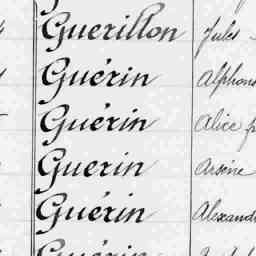 Guerillon Jules
Guérin Alphons
Guérin Alice
Guerin Arsène
Guérin Alexandr
Guérin